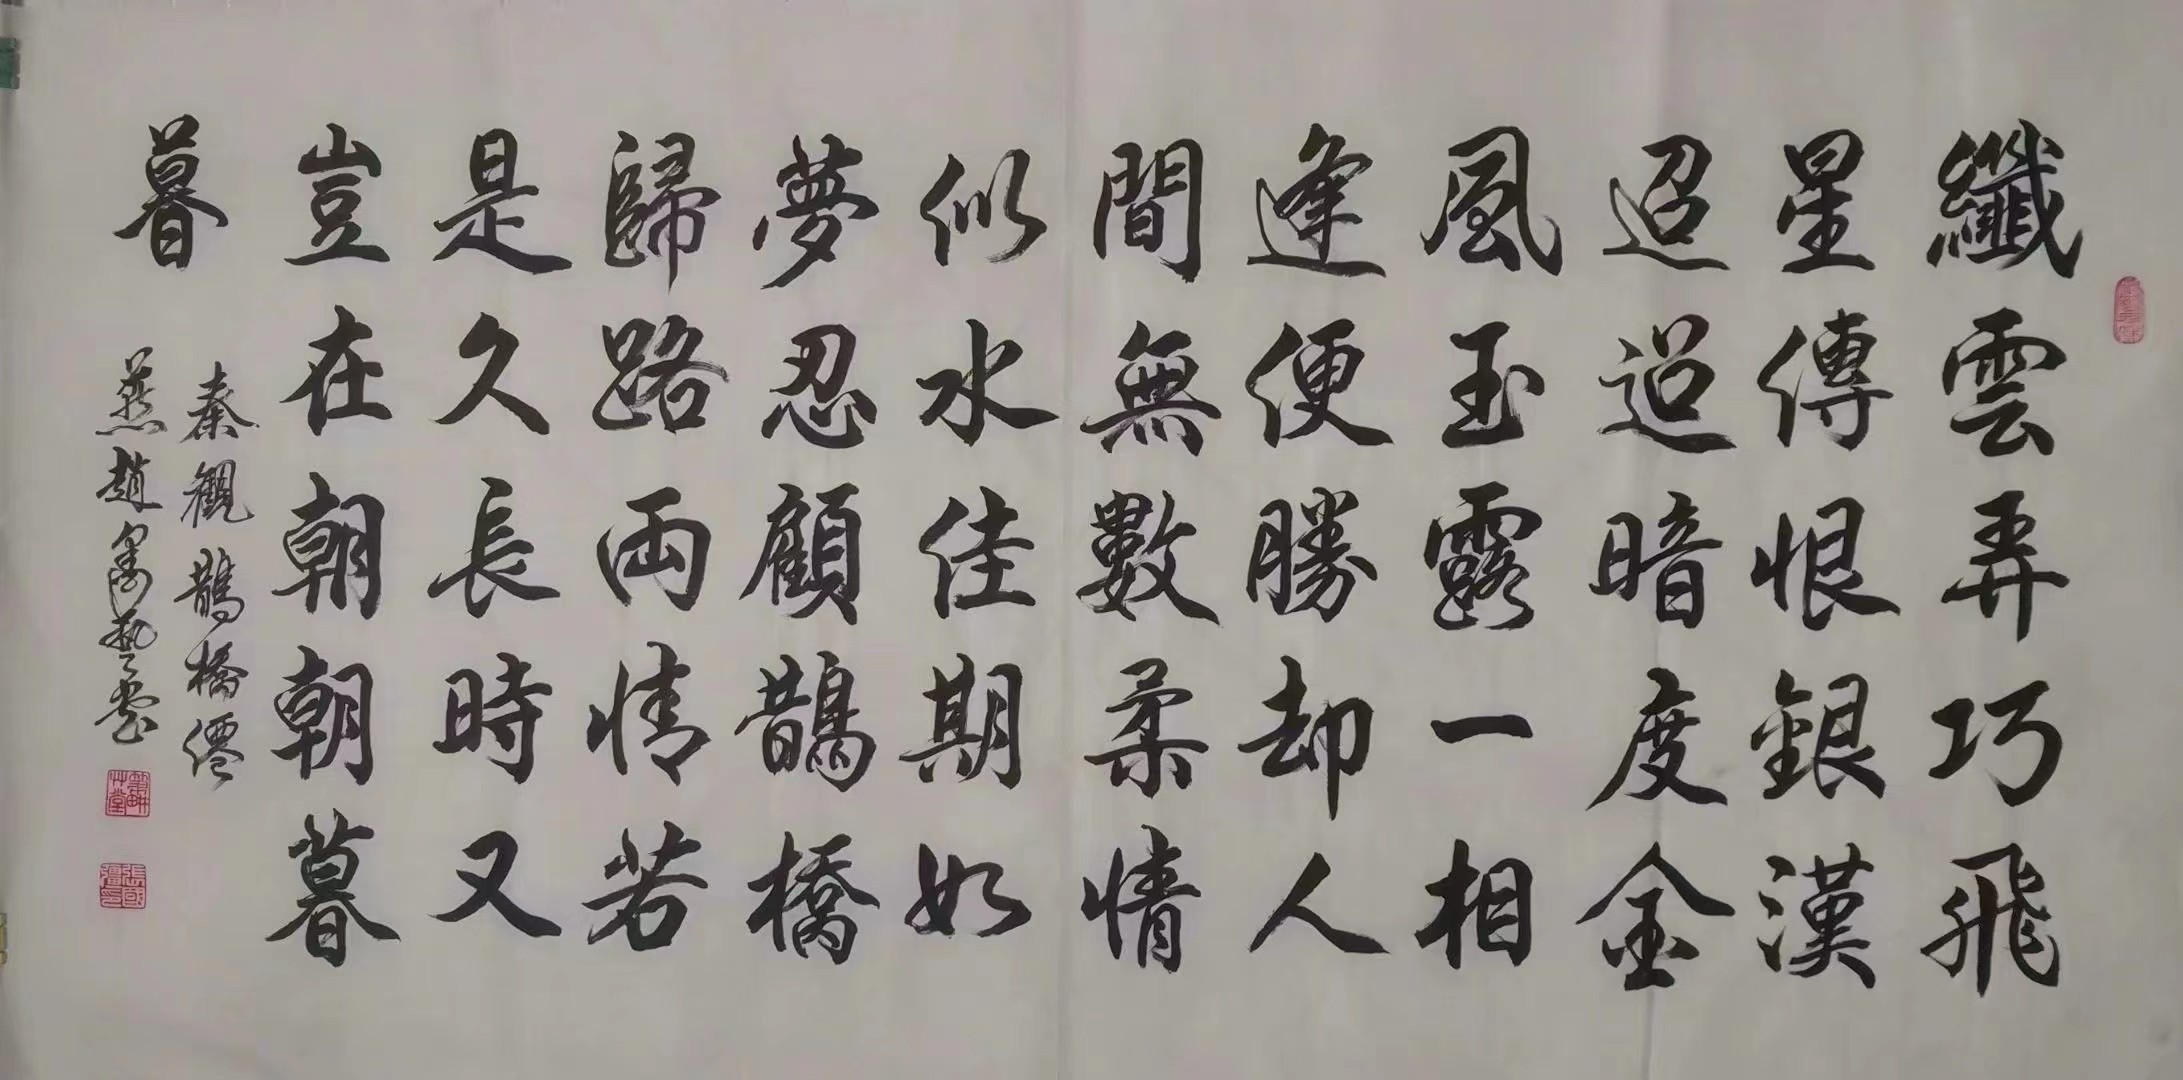 纖雲弄巧飛
星傳恨銀漢
迢迢暗度金
風玉露一相
逢便勝却人
間無數柔情
似水佳期如
夢忍顧鵲橋
歸路兩情若
是久長時又
豈在朝朝暮
暮
秦觀鵲橋僊
燕趙